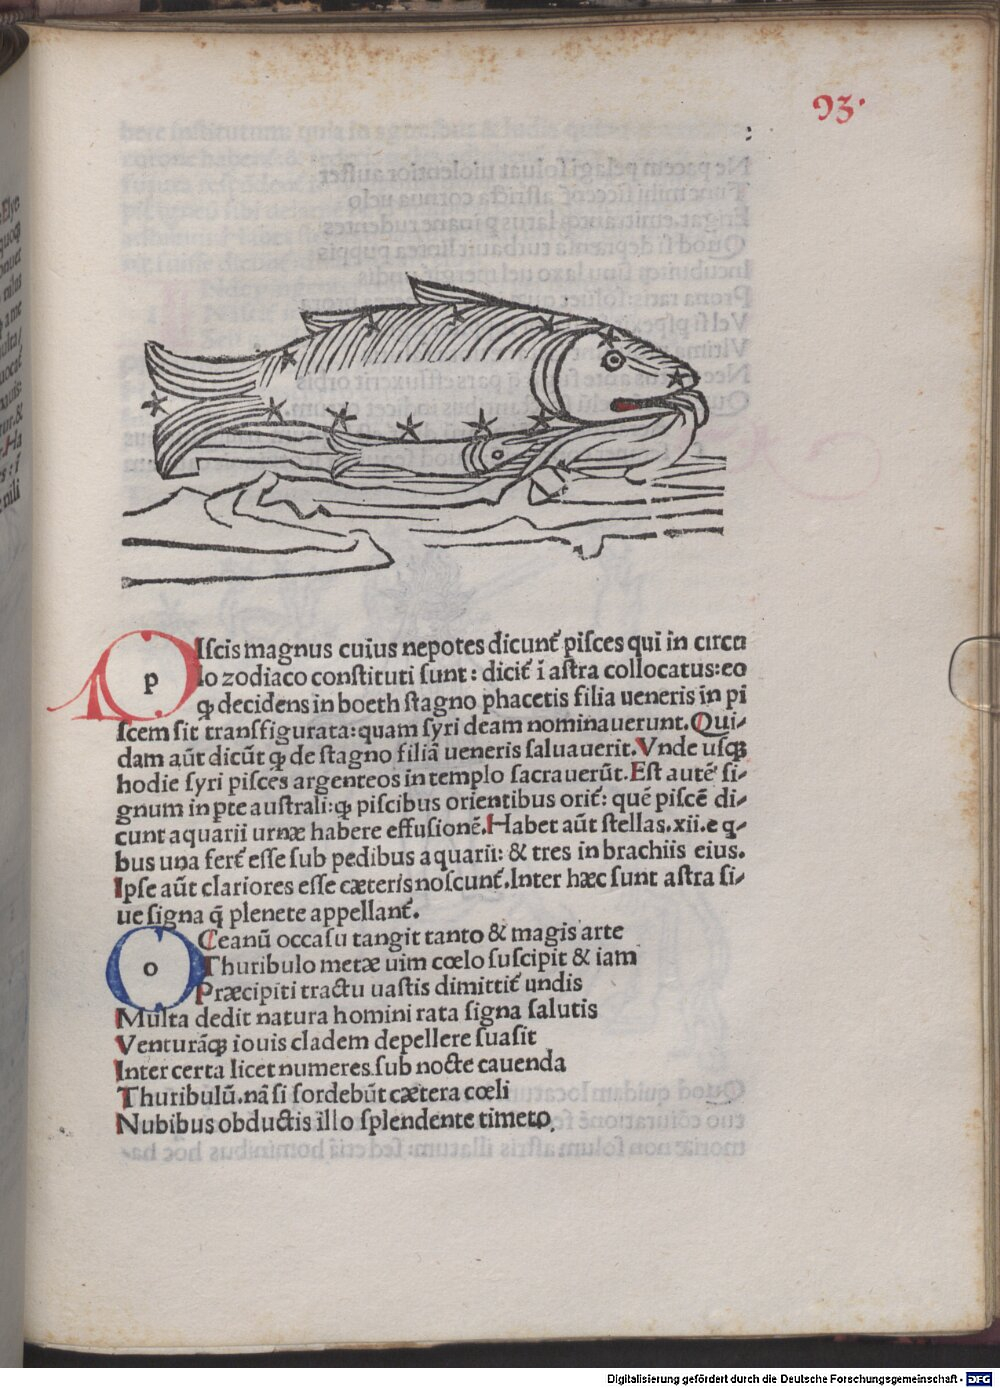 93.
PIſcis magnus cuius nepotes dicunt᷒ piſces qui in circu
lo zodiaco conſtituti ſunt : dicit᷒ ī aſtra collocatus: eo
ꝙ decidens in boeth ſtagno phacetis filia ueneris in pi
ſcem ſit tranſfigurata: quam ſyri deam nominauerunt. Qui-
dam aūt dicūt ꝙ de ſtagno filiā ueneris ſaluauerit. Vnde uſqꝫ
hodie ſyri piſces argenteos in templo ſacrauerūt. Eſt autē ſi-
gnum in pte auſtrali: ꝙ piſcibus orientibus orit᷒: quē piſcē di-
cunt aquarii urnæ habere effuſionē. Habet aūt ſtellas. xii. e q-
bus una fert᷒ eſſe ſub pedibus aquarii: & tres in brachiis eius.
Ipſe aūt clariores eſſe cæteris noſcunt᷒. Inter hæc ſunt aſtra ſi-
ue ſigna q̄ plenete appellant᷒.
OCeanū occaſu tangit tanto & magis arte
Thuribulo metæ uim cœlo ſuſcipit & iam
Præcipiti tractu uaſtis dimittit᷒ undis
Multa dedit natura homini rata ſigna ſalutis
Venturāqꝫ iouis cladem depellere ſuaſit
Inter certa licet numeres ſub nocte cauenda
Thuribulū. nā ſi ſordebūt cætera cœli
Nubibus obductis illo ſplendente timeto.
Digitalisierung gefördert durch die Deutsche Forschungsgemeinschaft - DFG